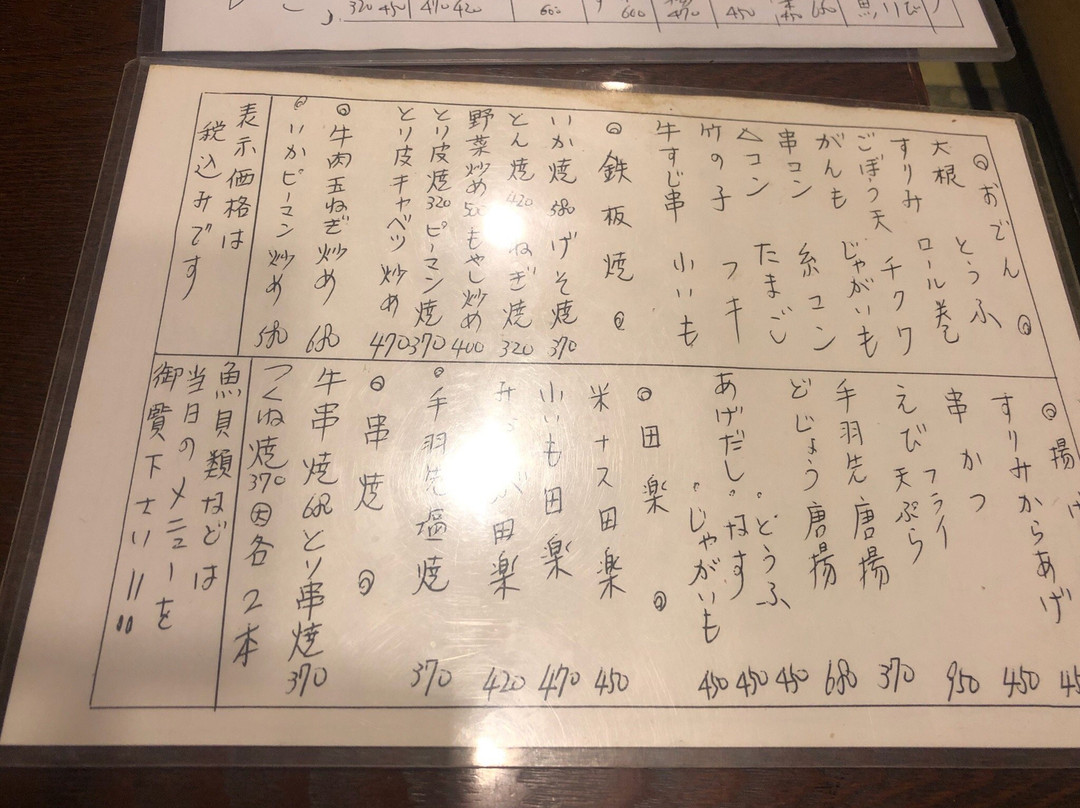 320 450 470 420 600 600 470 450 680
◎おでん◎
大根 とうふ
すりみ ロール巻
ごぼう天 チクワ
がんも じゃがいも
串コン 糸コン
△コン たまご
竹の子 フキ
牛すじ串 小いも
◎鉄板焼◎
いか焼580 げそ焼370
とん焼420 ねぎ焼320
野菜炒め500 もやし炒め400
とり皮焼320 ピーマン焼370
とり皮キャベツ炒め470
◎牛肉玉ねぎ炒め680
◎いかピーマン炒め580
表示価格は
税込みです
◎揚げ
すりみからあげ450
串かつ950
えび天ぷら フライ370
手羽先唐揚680
どじょう唐揚450
あげだし。とうふ450
。なす450
。じゃがいも450
◎田楽◎
米ナス田楽450
小いも田楽470
田楽420
。手羽先塩焼370
◎串焼◎
牛串焼680とり串焼370
つくね焼370 各2本
魚貝類などは
当日のメニューを
御覧下さい!!